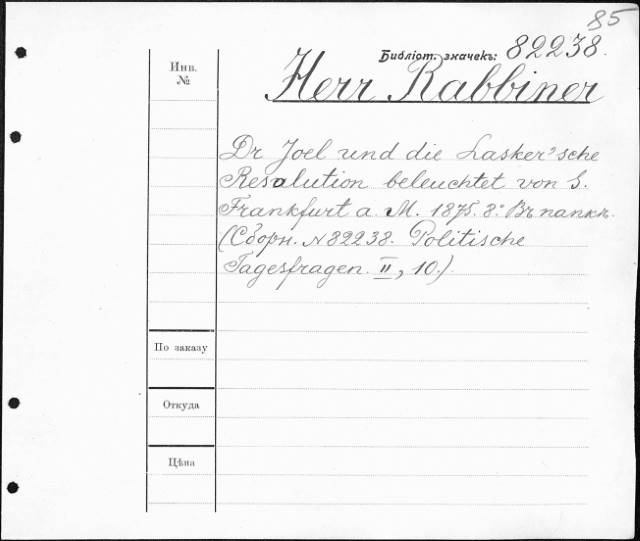 85
Библіот. значекъ: 82238.
Инв.
№
Herr Rabbiner
Dr Joel und die Lasker'sche
Resolution beleuchtet von S.
Frankfurt a. M. 1875. 8.° Въ папкѣ.
(Сборн. №82238. Politische
Tagesfragen. II, 10.)
По заказу
Откуда
Цѣна